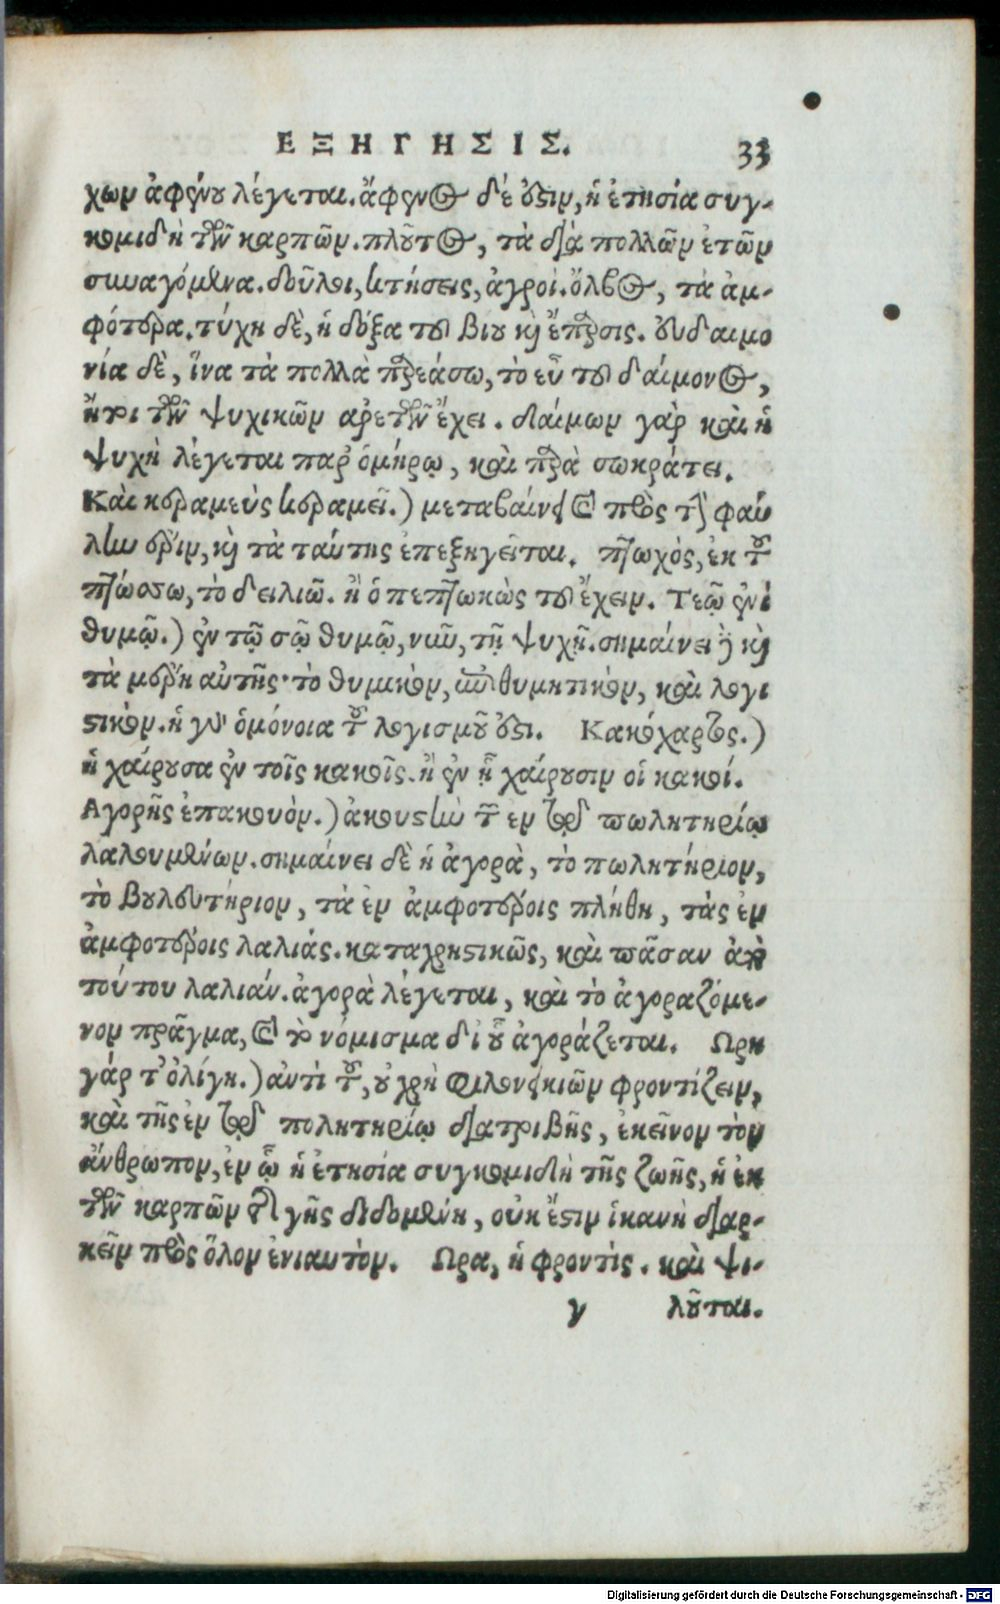 ΕΞΗΓΗΣΙΣ. 33
χων ἀφένου λέγεται. ἄφενος δέ ἐστιν, ἡ ἐτησία συγ-
κομιδὴ τῶν καρπῶν. πλοῦτος, τὰ διὰ πολλῶν ἐτῶν
συναγόμενα. δοῦλοι, κτήσεις, ἀγροί. ὄλβος, τὰ ἀμ-
φότερα. τύχη δὲ, ἡ δόξα τοῦ βίου καὶ ἔπαρσις. εὐδαιμο
νία δὲ, ἵνα τὰ πολλὰ παρεάσω, τὸ εὖ τοῦ δαίμονος,
ἤτοι τῶν ψυχικῶν ἀρετῶν ἔχει. δαίμων γὰρ καὶ ἡ
ψυχὴ λέγεται παρ' ὁμήρῳ, καὶ παρὰ σωκράτει.
Καὶ κεραμεὺς κεραμεῖ.) μεταβαίνει καὶ πρὸς τὴν φαύ
λην ἔριν, καὶ τὰ ταύτης ἐπεξηγεῖται. πτωχὸς, ἐκ τοῦ
πτώσσω, τὸ δειλιῶ. ἢ ὁ πεπτωκὼς τοῦ ἔχειν. Τεῷ ἐνὶ
θυμῷ.) ἐν τῷ σῷ θυμῷ, νῦν, τῇ ψυχῇ. σημαίνει γὰρ καὶ
τὰ μέρη αὐτῆς· τὸ θυμικὸν, ἐπιθυμητικὸν, καὶ λογι
στικὸν. ἡ γὰρ ὁμόνοια τοῦ λογισμοῦ ἐστι. Κακόχαρτος.)
ἡ χαίρουσα ἐν τοῖς κακοῖς. ἢ ἐν ᾗ χαίρουσιν οἱ κακοί.
Αγορῆς ἐπακουὸν.) ἀκουστὴν τῶν ἐν τῷ πωλητηρίῳ
λαλουμένων. σημαίνει δὲ ἡ ἀγορὰ, τὸ πωλητήριον,
τὸ βουλευτήριον, τὰ ἐν ἀμφοτέροις πλήθη, τὰς ἐν
ἀμφοτέροις λαλιάς. καταχρηστικῶς, καὶ πᾶσαν ἀπὸ
τούτου λαλιάν. ἀγορὰ λέγεται, καὶ τὸ ἀγοραζόμε-
νον πρᾶγμα, καὶ τὸ νόμισμα δι' οὗ ἀγοράζεται. Ωρη
γάρ τ' ὀλίγη.) ἀντὶ τοῦ, οὐ χρὴ φιλονεικιῶν φροντίζειν,
καὶ τῆς ἐν τῷ πολητηρίῳ διατριβῆς, ἐκεῖνον τὸν
ἄνθρωπον, ἐν ᾧ ἡ ἐτησία συγκομιδὴ τῆς ζωῆς, ἡ ἐκ
τῶν καρπῶν τῆς γῆς διδομένη, οὐκ ἔστιν ἱκανὴ διαρ-
κεῖν πρὸς ὅλον ἐνιαυτὸν. Ωρα, ἡ φροντὶς. καὶ ψι-
γ λοῦται.
Digitalisierung gefördert durch die Deutsche Forschungsgemeinschaft - DFG